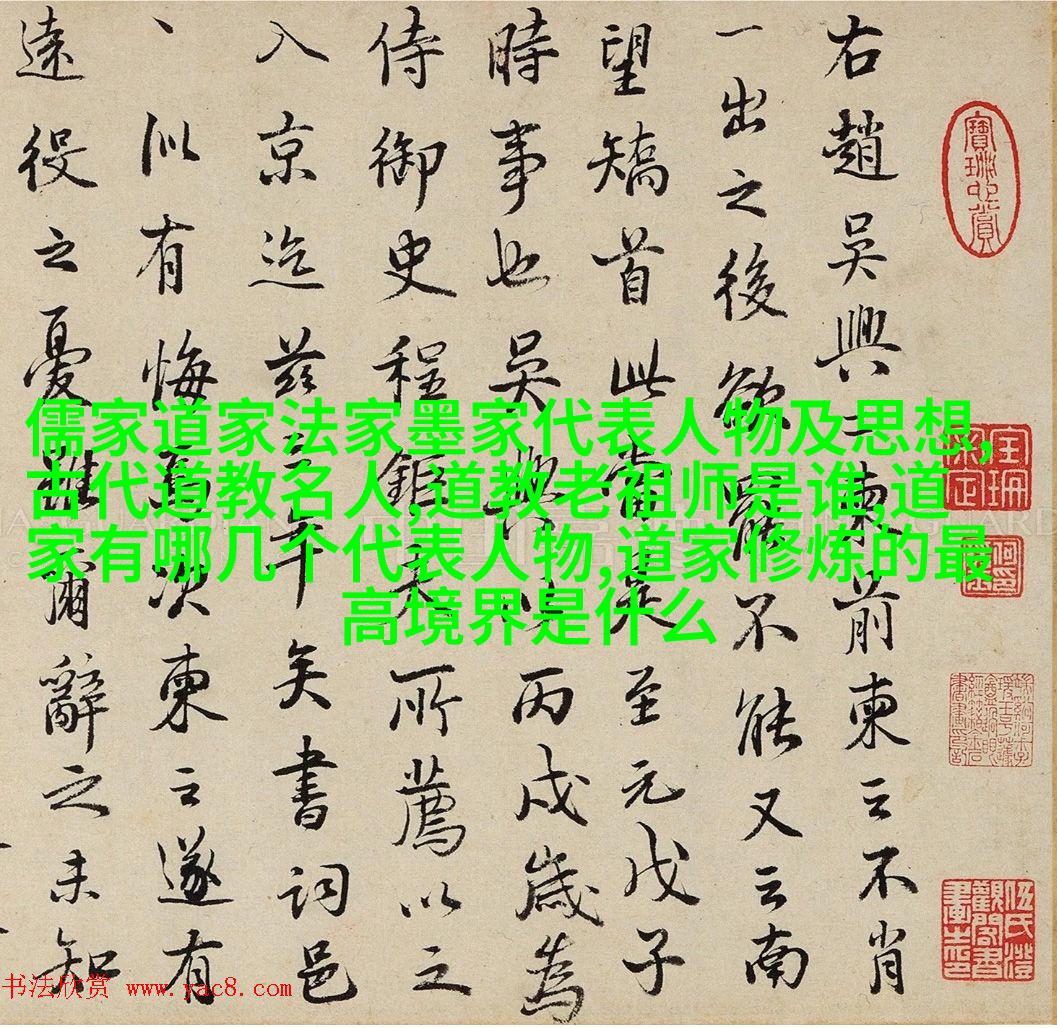 右趙吳興二柬前柬云不肖
一出之後欲罷不能又云南
望矯首此當是至元戊子
時事也吳興以丙戌歲為
侍御史程鉅夫所薦以之
入京迄茲三年矣書詞邑
、似有悔焉次柬云遂有
遠役之憂雖爾辭之未知
儒家道家法家墨家代表人物及思想,
古代道教名人,道教老祖师是谁,道
家有哪几个代表人物,道家修炼的最
高境界是什么
书法欣赏 www.yac8.com